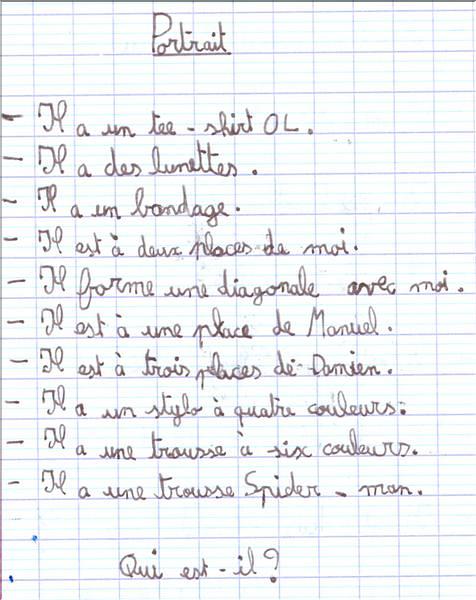 Portrait
- Il a un tee-shirt OL.
- Il a des lunettes.
- Il a un bandage.
- Il est à deux places de moi.
- Il forme une diagonale avec moi.
- Il est à une place de Manuel.
- Il est à trois places de Damien.
- Il a un stylo à quatre couleurs.
- Il a une trousse à six couleurs.
- Il a une trousse Spider-man.
Qui est-il ?